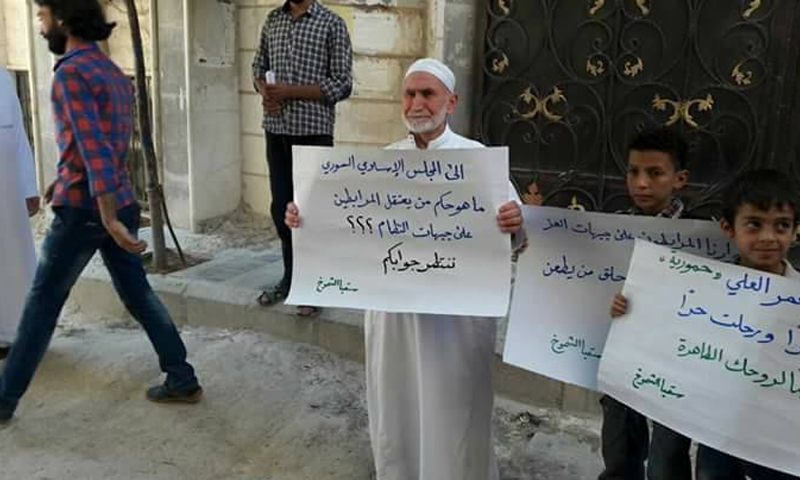 الى المجلس الإسلامي السوري
ما هو حكم من يعتقل المرابطين
على جبهات النظام ؟؟؟
ننتظر جوابكم
سقبا الشموخ
المرابطين على جبهات العز
من يطعن
سقبا الشموخ
العلي وحمورية
ورحلت حرًا
لروحك الطاهرة
سقبا الشموخ